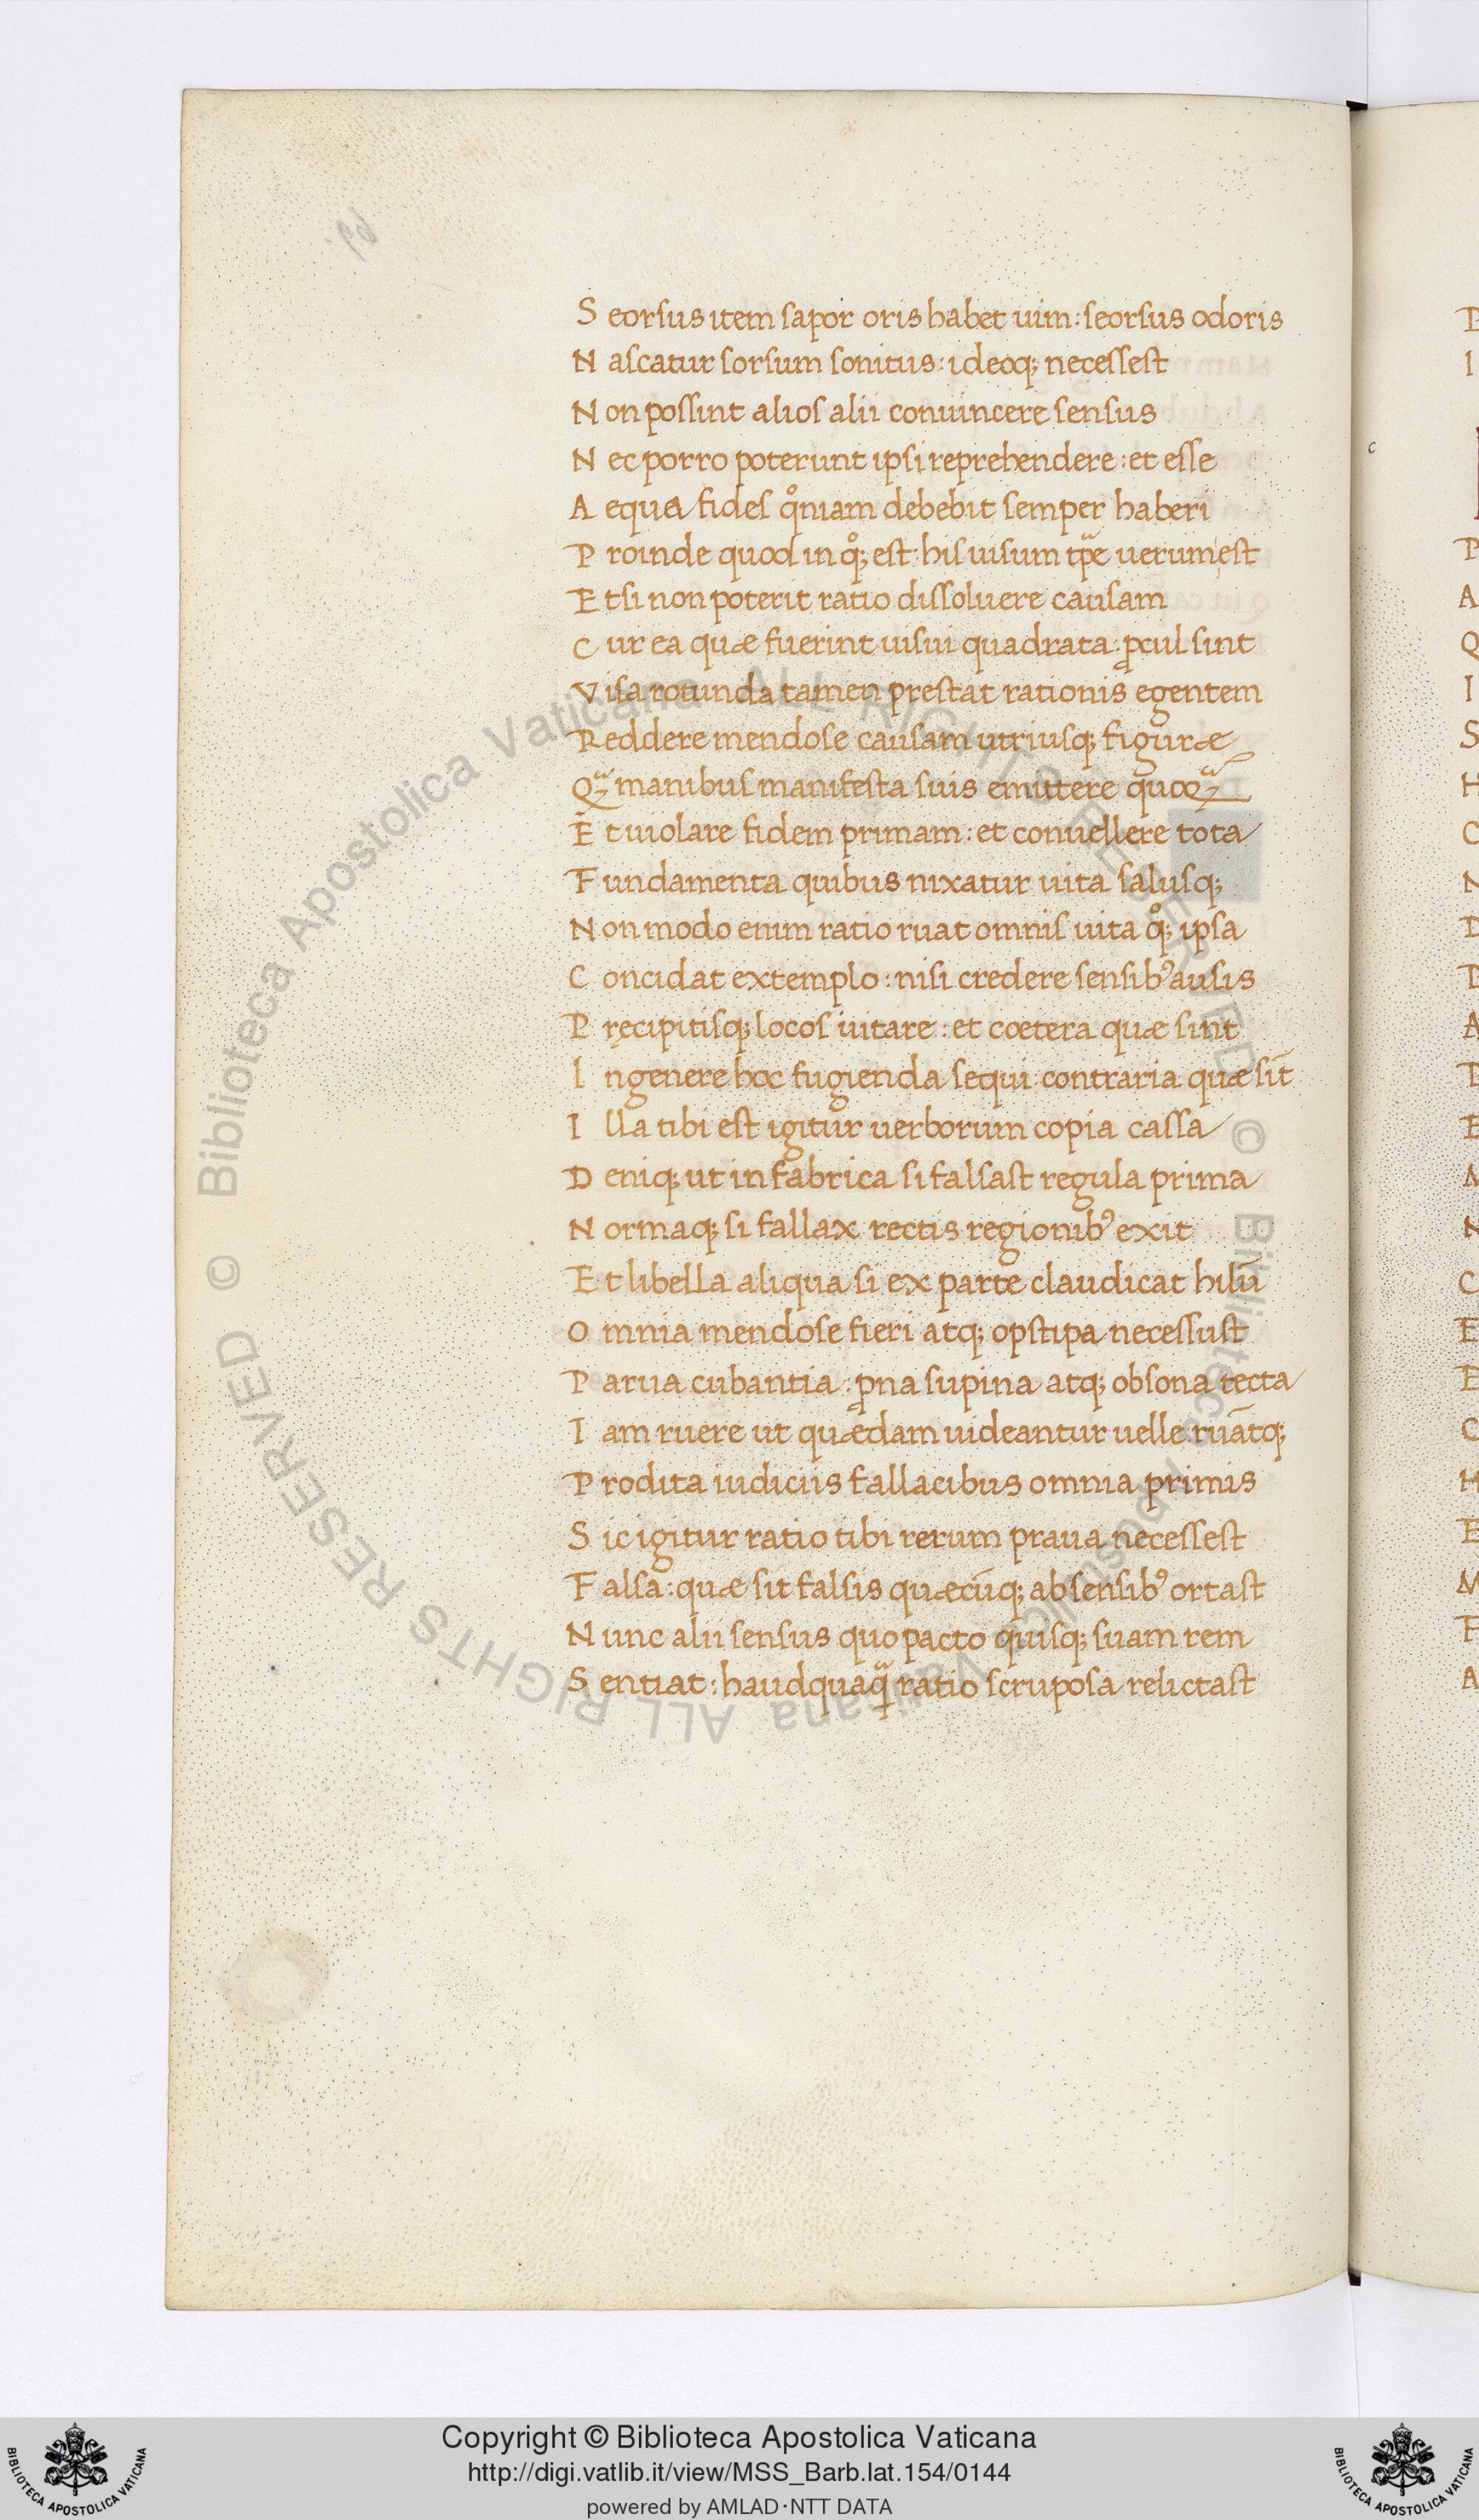 S eorsus item sapor oris habet uim: seorsus odoris
N ascatur sorsum sonitus: ideoq; necessest
N on possint alios alii conuincere sensus
N ec porro poterunt ipsi reprehendere: et esse
A equa fides qͦniam debebit semper haberi
P roinde quod in qͦ; est his uisum tꝑe uerum, est
E t si non poterit ratio dissoluere causam
C ur ea quæ fuerint uisui quadrata: ꝓcul sint
V isa rotunda tamen prestat rationis egentem
R eddere mendose causam utriusq; figuræ
Qᷓ manibus manifesta suis emittere quoqᷓ
E t uiolare fidem primam: et conuellere tota
F undamenta quibus nixatur uita salusq;
N on modo enim ratio ruat omnis uita qͦ; ipsa
C oncidat extemplo: nisi credere sensibꝰ ausis
P ręcipitisq; locos uitare: et cœtera quæ sint
I n genere hoc fugienda sequi contraria quæ sīt
I lla tibi est igitur uerborum copia cassa
D eniq; ut in fabrica si falsast regula prima
N ormaq; si fallax rectis regionibꝰ exit
E t libella aliqua si ex parte claudicat hilū
O mnia mendose fieri atq; opstipa necessust
P arua cubantia: ꝓna supina atq; obsona tecta
I am ruere ut quædam uideantur uelle: ruātq;
P rodita iudiciis fallacibus omnia primis
S ic igitur ratio tibi rerum praua necessest
F alsa: quæ sit falsis quæcūq; ab sensibꝰ ortast
N unc alii sensus quo pacto quisq; suam rem
S entiat: haudquaqᷓ ratio scruposa relictast
Copyright © Biblioteca Apostolica Vaticana
http://digi.vatlib.it/view/MSS_Barb.lat.154/0144
powered by AMLAD·NTT DATA